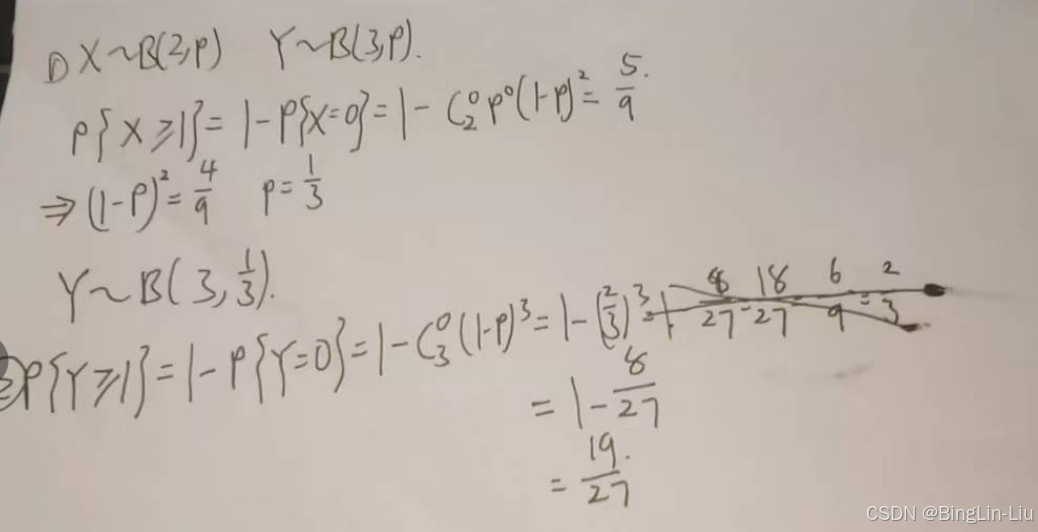 ① X~B(2,P) Y~B(3,P).
P{X≥1}=1-P{X=0}=1-C₂⁰P⁰(1-P)²=5/9.
⇒(1-P)²=4/9 P=1/3
Y~B(3,1/3).
②P{Y≥1}=1-P{Y=0}=1-C₃⁰(1-P)³=1-(2/3)³=1-8/27=18/27=6/9=2/3
=1-8/27
=19/27.
CSDN @BingLin-Liu